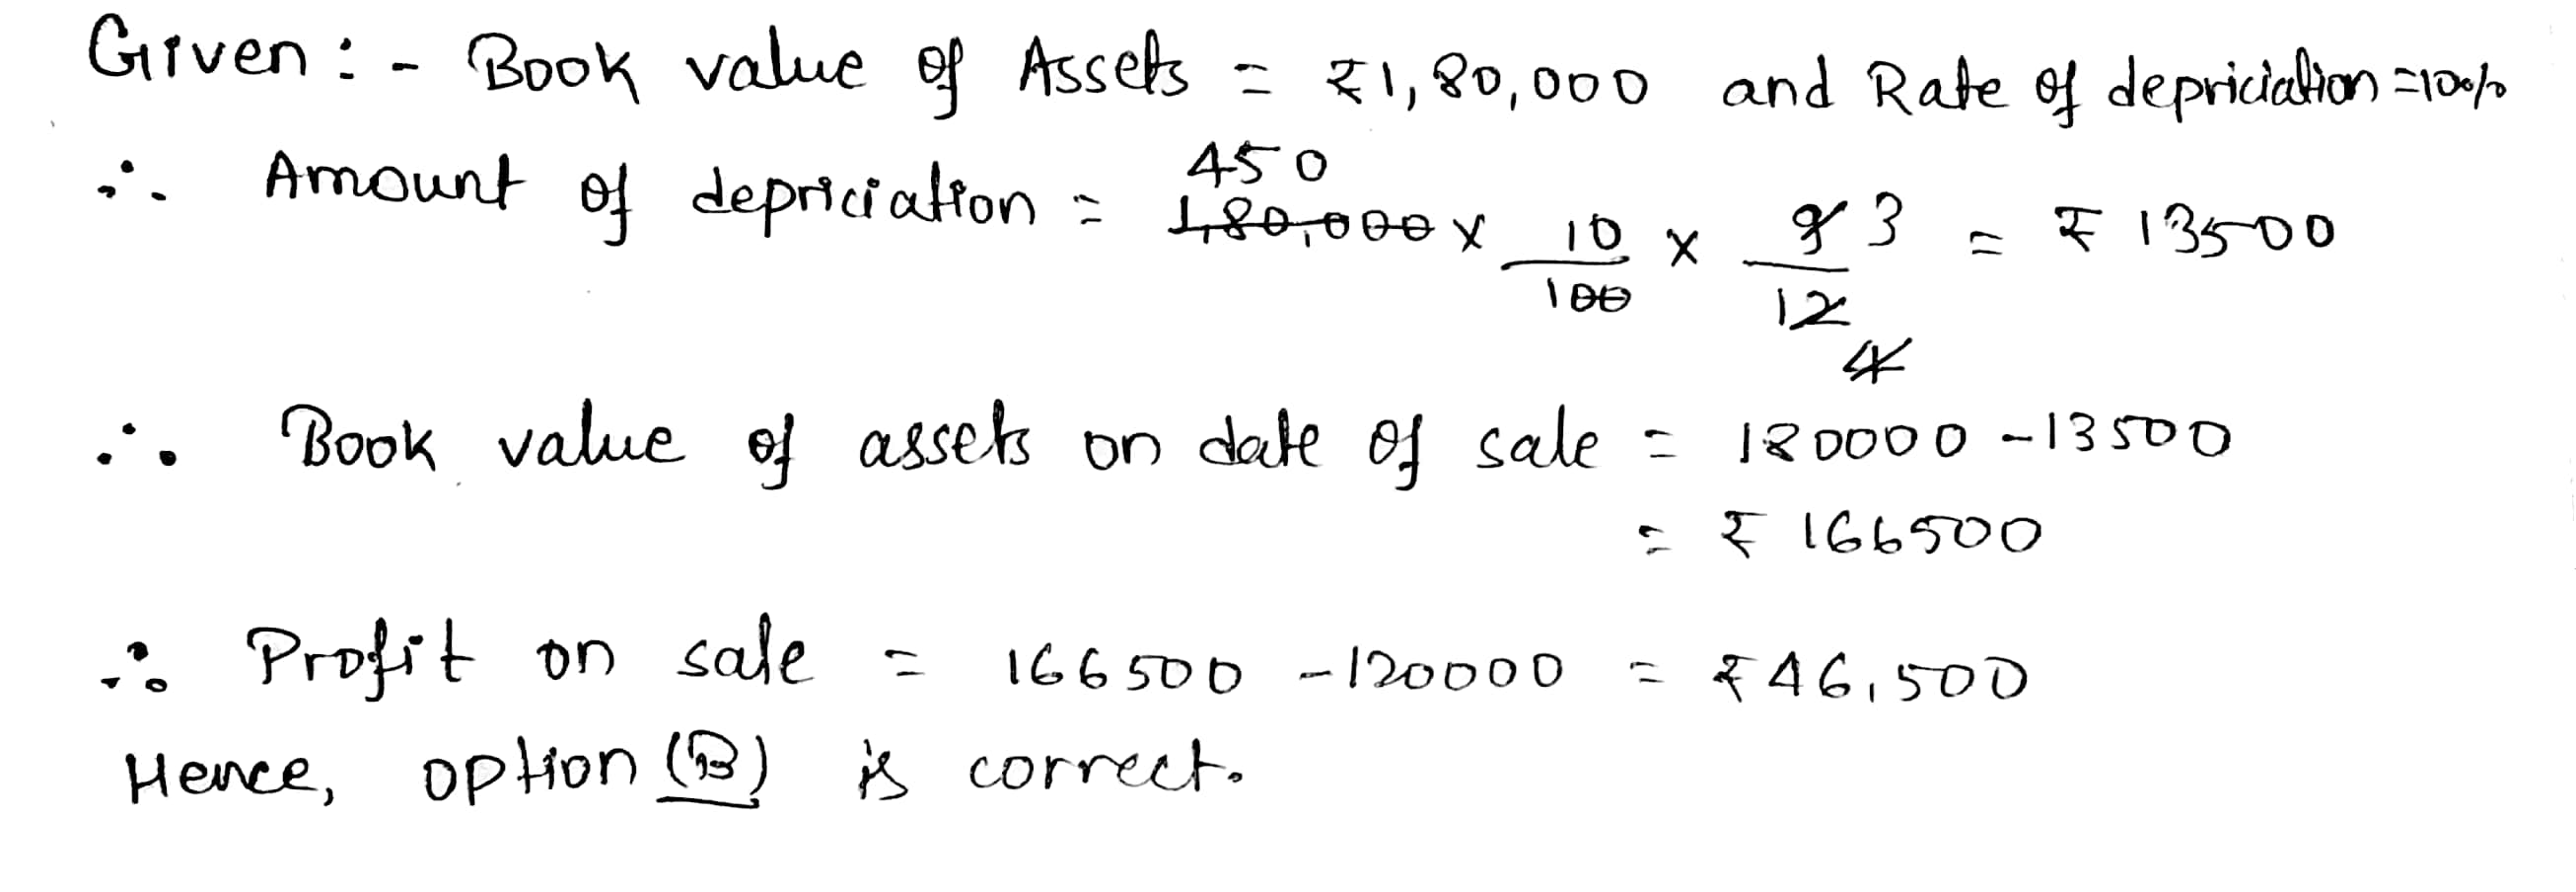 Given :- Book value of Assets = ₹1,80,000 and Rate of depriciation =10%
450
∴ Amount of depriciation = 1,80,000 x 10/100 x 9/12 3 = ₹ 13500
4
∴ Book value of assets on date of sale = 180000 - 13500
= ₹ 166500
∴ Profit on sale = 166500 - 120000 = ₹46,500
Hence, option (B) is correct.